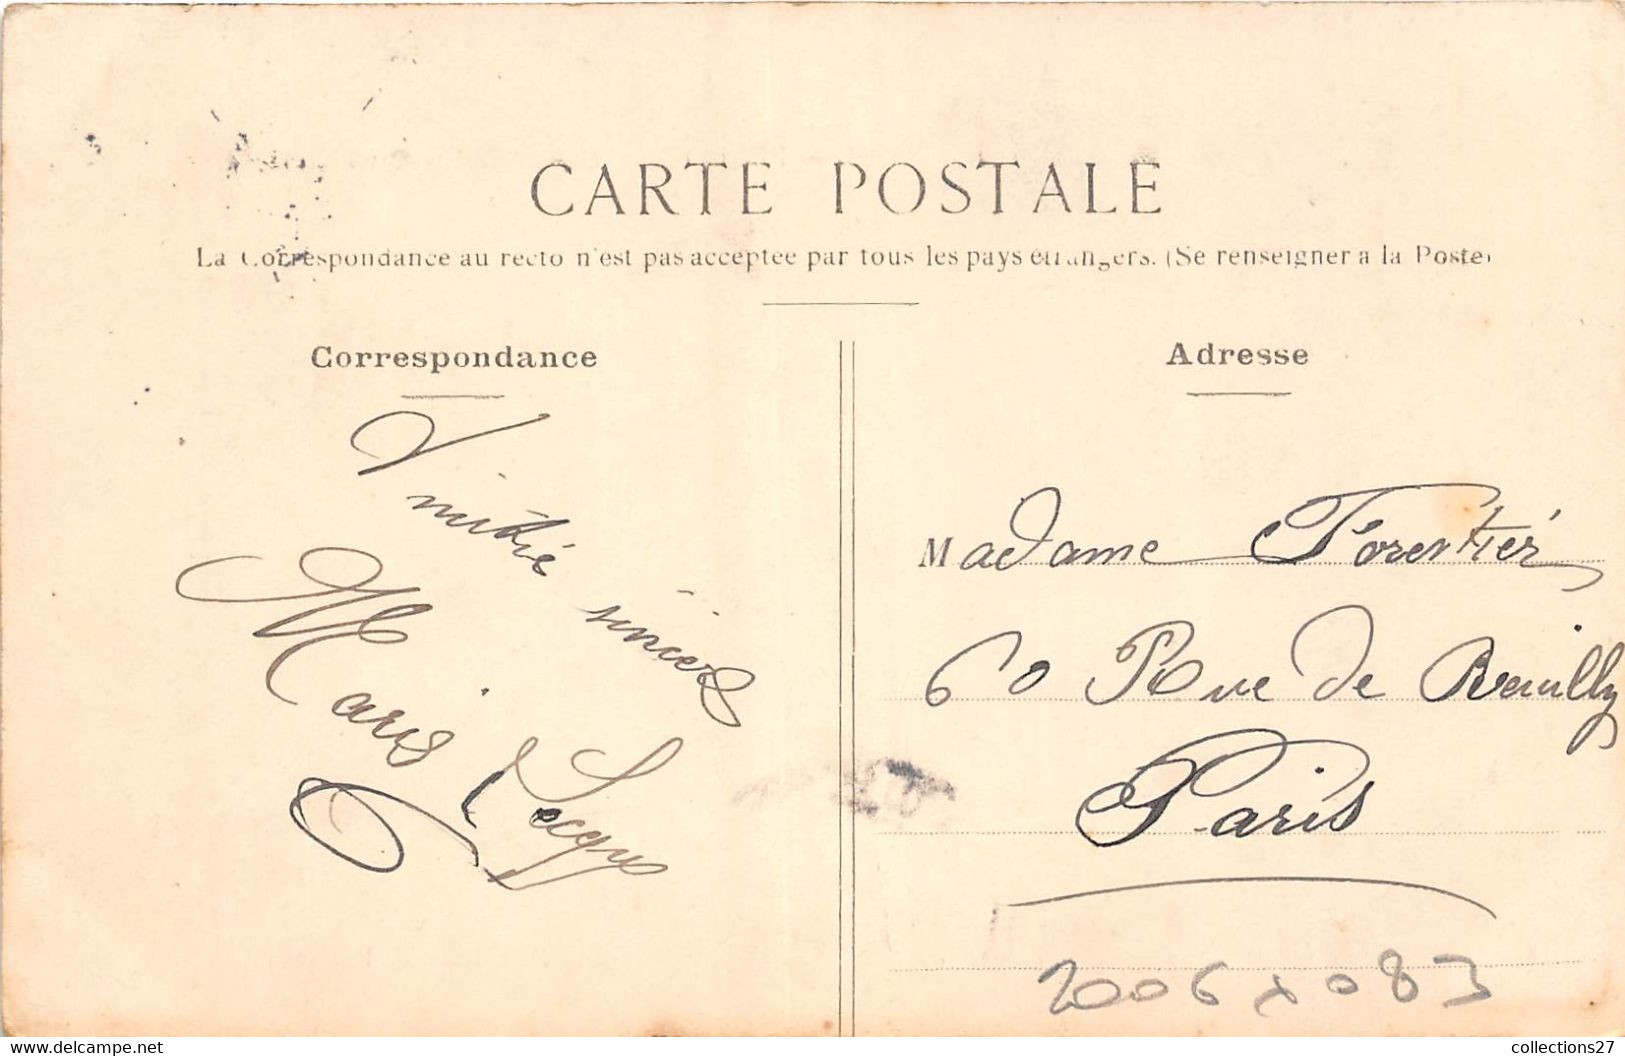 CARTE POSTALE
La Correspondance au recto n'est pas acceptée par tous les pays étrangers. (Se renseigner à la Poste)
Correspondance
Amitié sincère
Marie
Adresse
Madame Forestier
60 Rue de Reuilly
Paris
2006 x 083
delcampe.net
collections27